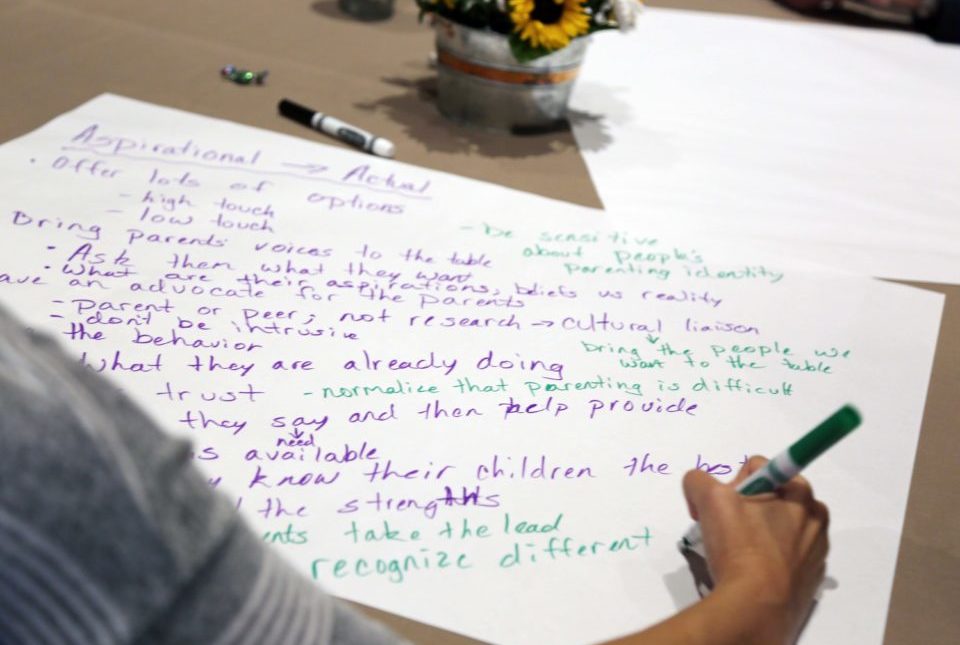 Aspirational → Actual
• Offer lots of options
- high touch
- low touch
Bring parents' voices to the table
- Ask them what they want
• What are their aspirations, beliefs vs reality
ave an advocate for the parents
- parent or peer, not research → cultural liaison
- don't be intrusive
the behavior
what they are already doing
trust
they say and then help provide
need
s available
know their children the best
the strengths
- be sensitive
about people's
parenting identity
bring the people we
want to the table
- normalize that parenting is difficult
ents take the lead
recognize different